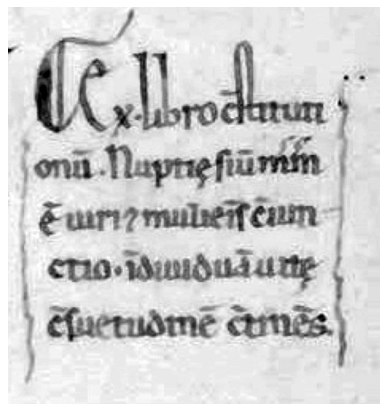 Ex libro c̄stituti
onū. Nuptię siū m̄im
ē uiri ⁊ mulier̄ c̄iun
ctio. īdiuiduā uitę
c̄suetudinē c̄tinēs.